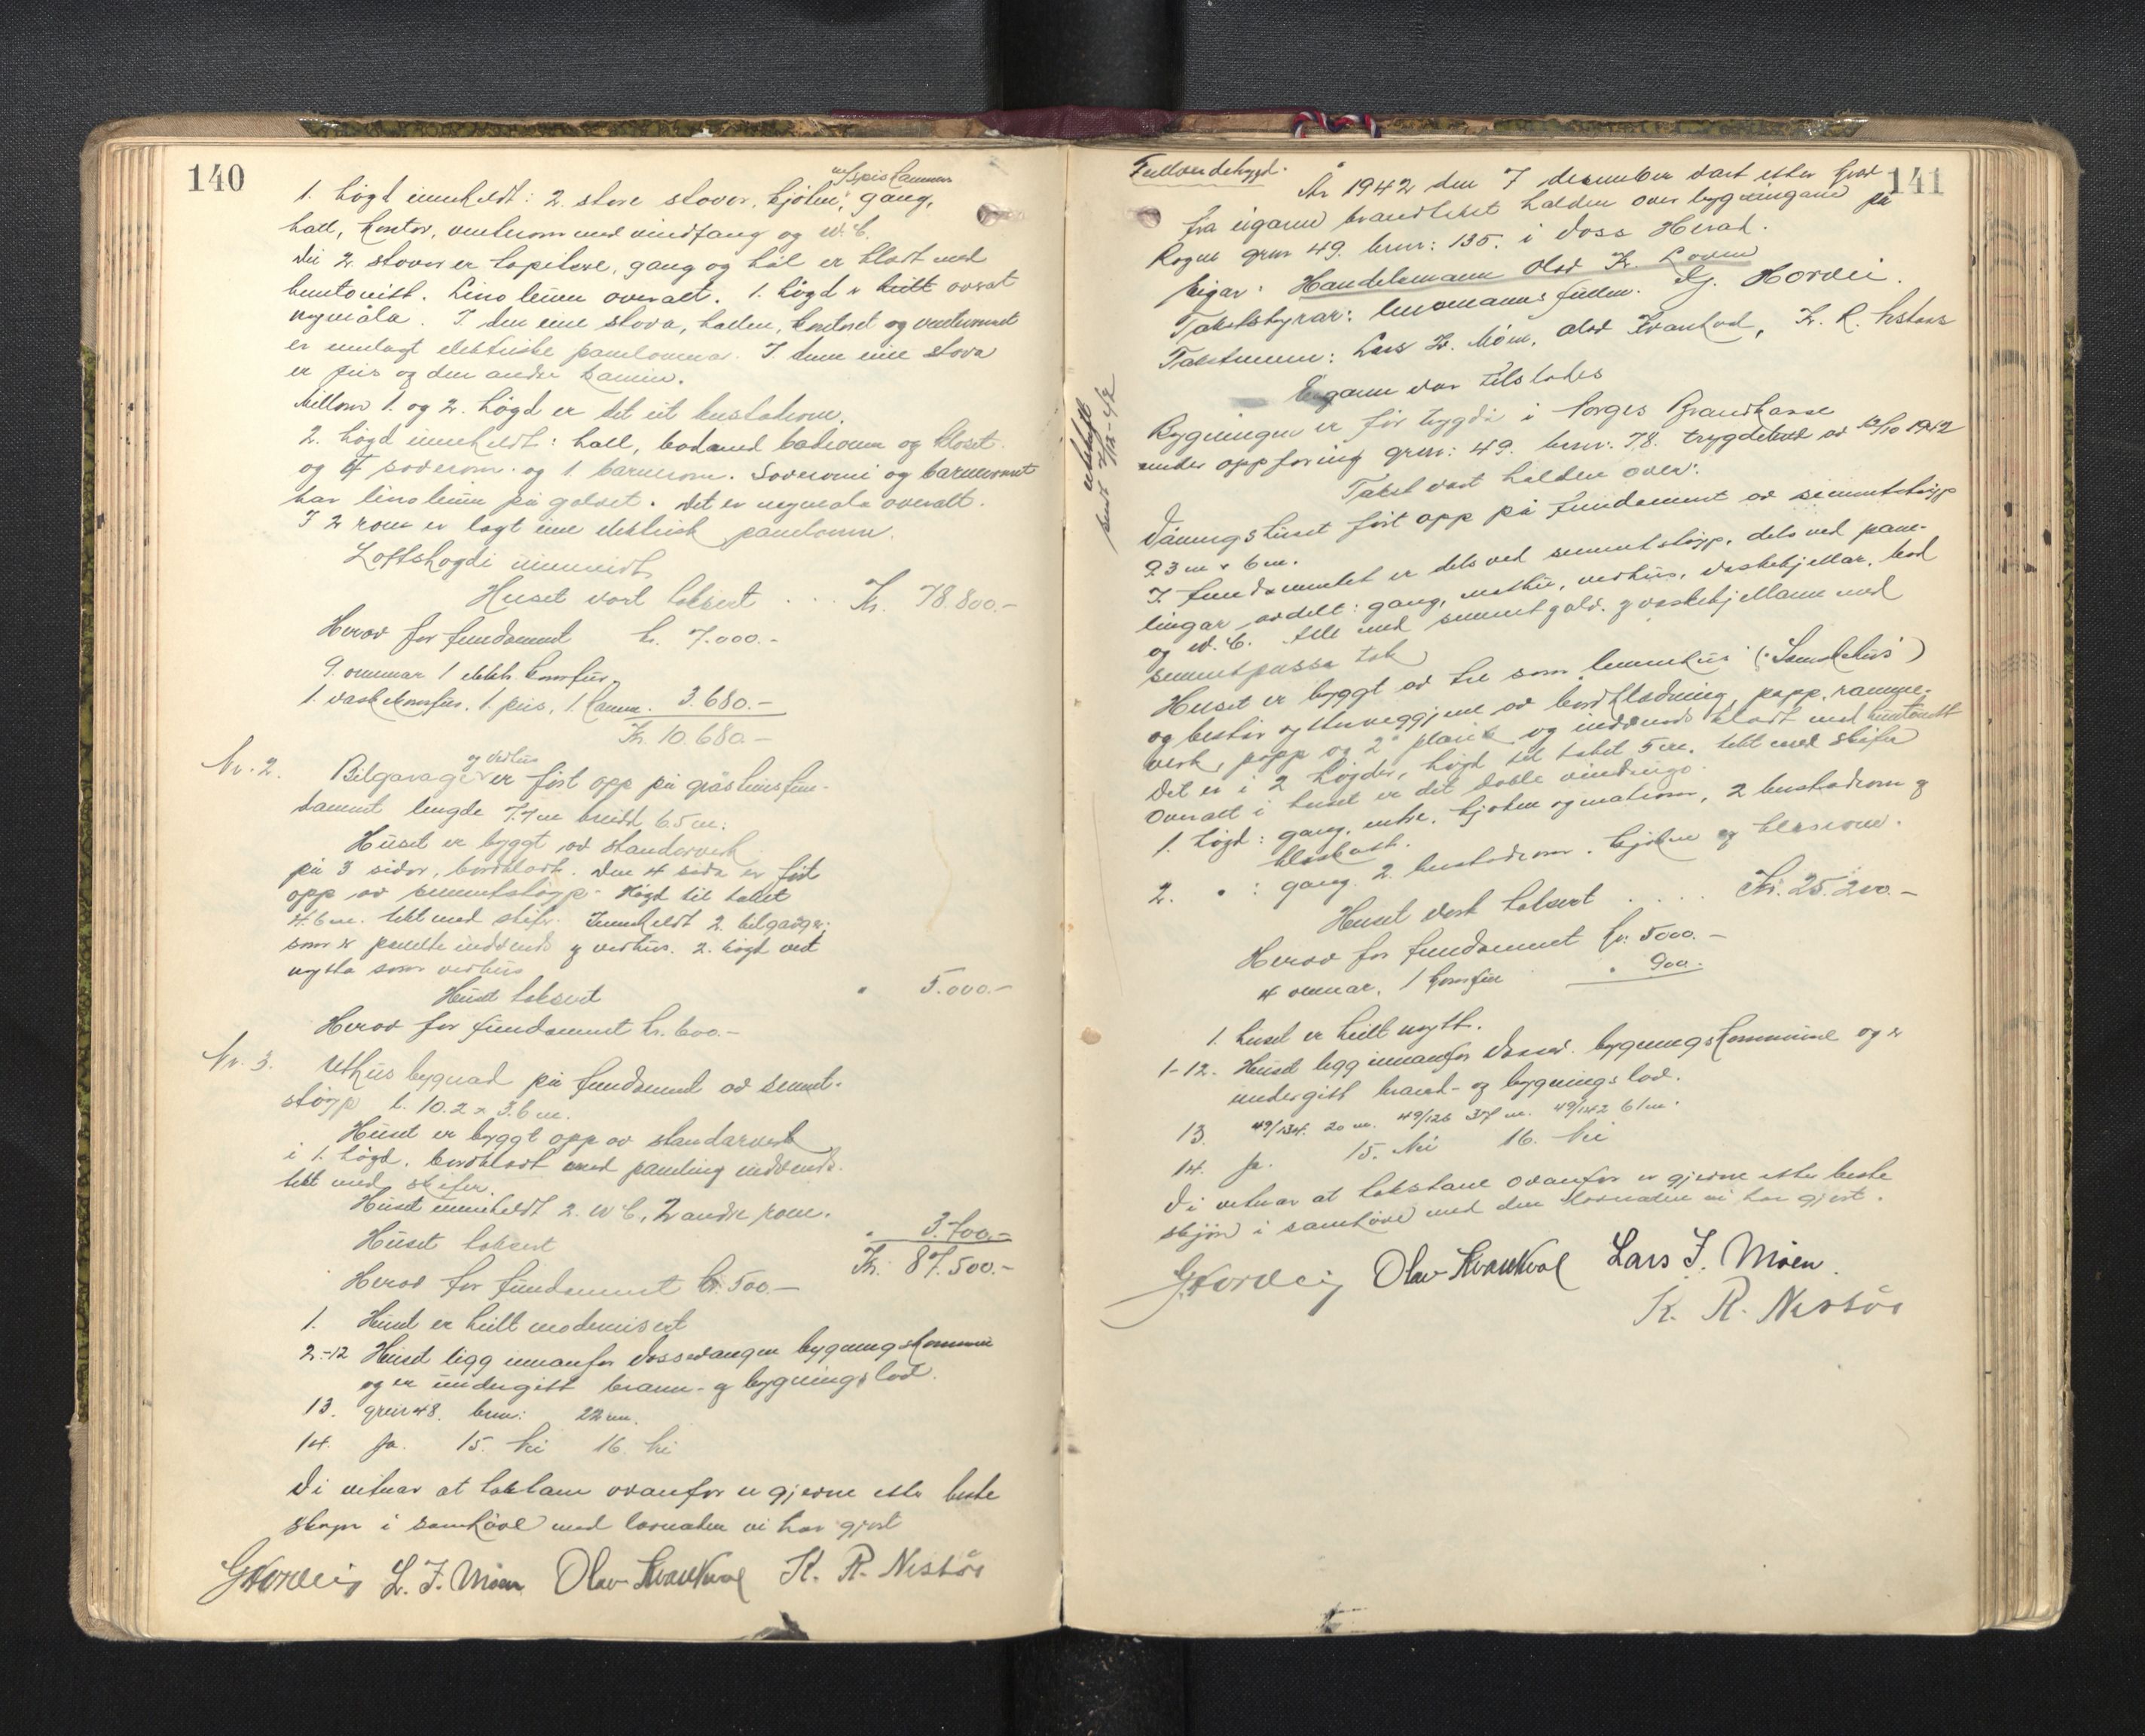 140
m/spiskammer
1. høgd inneheldt: 2. store stover, kjøken, gang,
hall, kontor, venterom med vindfang og W.C.
Dei 2 stover er tapisere, gang og hall er kledt med
huntonitt. Linoleum overalt. 1. høgd er heilt overalt
nymåla. I den eine stova, hallen, kontoret og venterommet
er innlagt elektriske panelomnar. I denne eine stova
er peis og den andre kamin.
Millom 1. og 2. høgd er det eit kustorom.
2. høgd inneheldt: hall, badrom og kloset
og 4 soverom og 1. barnerom. Soveromi og barnerommet
har linoleum på golvet. Det er nymåla overalt.
I 2 rom er lagt inn elektrisk panelomn.
Loftshøgdi uinnreidt
Huset vart taksert . . . Kr. 78.800.-
Herav for fundament kr. 7.000.-
9 omnar 1 elektr. komfur,
1. vaskekomfur, 1 peis, 1 kamin. 3.680.-
Kr. 10.680.-
og vedhus
Nr. 2. Bilgarage er ført opp på gråsteinsfun-
dament lengde 7.7 m breidd 6.5 m.
Huset er byggt av standerverk
på 3 sidor, bordkledt. Den 4 sida er ført
opp av sementstøyp. Høgd til taket
4.6 m. tekt med skifer. Inneheldt 2. bilgarager,
som er panelte innvendes og vedhus. 2. høgd vert
nytta som vedhus
Huset taksert " 5.000.-
Herav for fundament kr. 600.-
Nr. 3. Uthusbygnad på fundament av sement-
støyp l. 10.2 x 3.6 m.
Huset er byggt opp av standarverk
i 1. høgd. bordkledt med paneling innvendes.
tekt med skifer.
Huset inneheldt 2. W.C, 2 andre rom.
Huset taksert " 3.700.-
Kr. 87.500.-
Herav for fundament kr. 500.-
1. Huset er heilt modernisert
2-12 Huset ligg innanfor Vossevangen bygningskommune
og er undergitt brann- og bygningslov.
13. grnr 48. brnr: 22 m.
14. Ja. 15. Nei 16. Nei
Vi vitnar at takstane ovanfor er gjevne etter beste
skjøn i samhøve med lovnaden vi har gjort
G Horvei L. I. Møen Olav Kvankval K. R. Nestås
141
Fullverdetrygd.
År 1942 den 7 desember vart etter krav
fra eigaren brandtakst halden over bygningane på
Rogne grnr 49. brnr: 135. i Voss Herad.
Eigar: Handelsmann Olav K.
Takststyrar: lensmannsfullm. G. Horvei.
Takstmenn: Lars I. Møen, Olav Kvankval, K. R. Nestaas
Eigaren var tilstades
Bygningen er før trygda i Norges Brandkasse
under oppføring grnr: 49. brnr: 78. trygdebrev av 12/10 1942
Takst vart halden over:
utskrift
send 7/12-42
Våningshuset ført opp på fundament av sementstøyp
9.3 m x 6 m.
I fundamentet er dels ved sementstøyp, dels ved pane-
lingar avdelt: gang, matbu, vedhus, vaskekjellar, bad
og W.C. Alle med sementgolv. og vaskekjellaren med
sementpussa tak
Huset er byggt av tre som lemmehus
og består ytterveggjene av bordkledning, papp, ramme-
verk, papp og 2" plank og innvendes kledt med huntonitt
Det er i 2 høgder, høgd til taket 5 m. tekt med skifer
Overalt i huset er det doble vindaugo.
1. høgd: gang, entre, kjøken og matrom, 2 kustadrom og
klæskott.
2. " : gang. 2. kustadrom. kjøken og klesrom.
Huset vart taksert . . . . Kr. 25.200.-
Herav for fundamentet kr. 5000.-
4 omnar, 1 komfur " 900.-
1. huset er heilt nytt.
1-12. Huset ligg innanfor Vossev. bygningskommune og er
undergitt brand- og bygningslov.
13. 49/134. 20 m. 49/126 37 m. 49/142 61 m.
14. Ja. 15. Nei 16. Nei
Vi vitnar at takstane ovanfor er gjevne etter beste
skjøn i samhøve med den lovnaden vi har gjort.
G Horvei Olav Kvankval Lars I. Møen.
K. R. Nestås